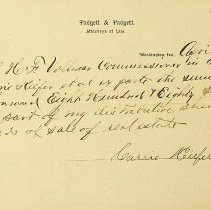 Padgett & Padgett,
Attorneys at Law.
Washington, Ind. April
H. F. Commissioner in
Keifer et al ex parte the sum
Eight Hundred & Eighty
part of my distributive share
of sale of real estate
Carrie Keifer